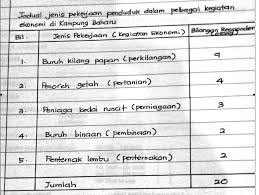 Jadual jenis pekerjaan penduduk dalam pelbagai kegiatan
ekonomi di Kampung Baharu
Bil. Jenis Pekerjaan (kegiatan Ekonomi) Bilangan Responden
1. Buruh kilang papan (perkilangan) 9
2. Penoreh getah (pertanian) 4
3. Peniaga kedai runcit (perniagaan) 3
4. Buruh binaan (pembinaan) 2
5. Penternak lembu (perternakan) 2
Jumlah 20